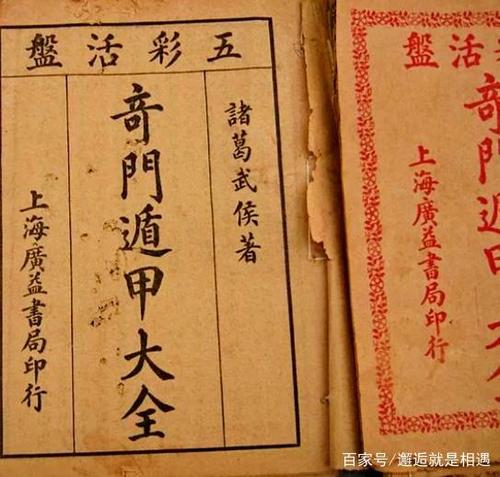 五彩活盤
諸葛武侯著
竒門遁甲大全
上海廣益書局印行
活盤
竒門遁甲
上海廣益書局印行
百家号/邂逅就是相遇